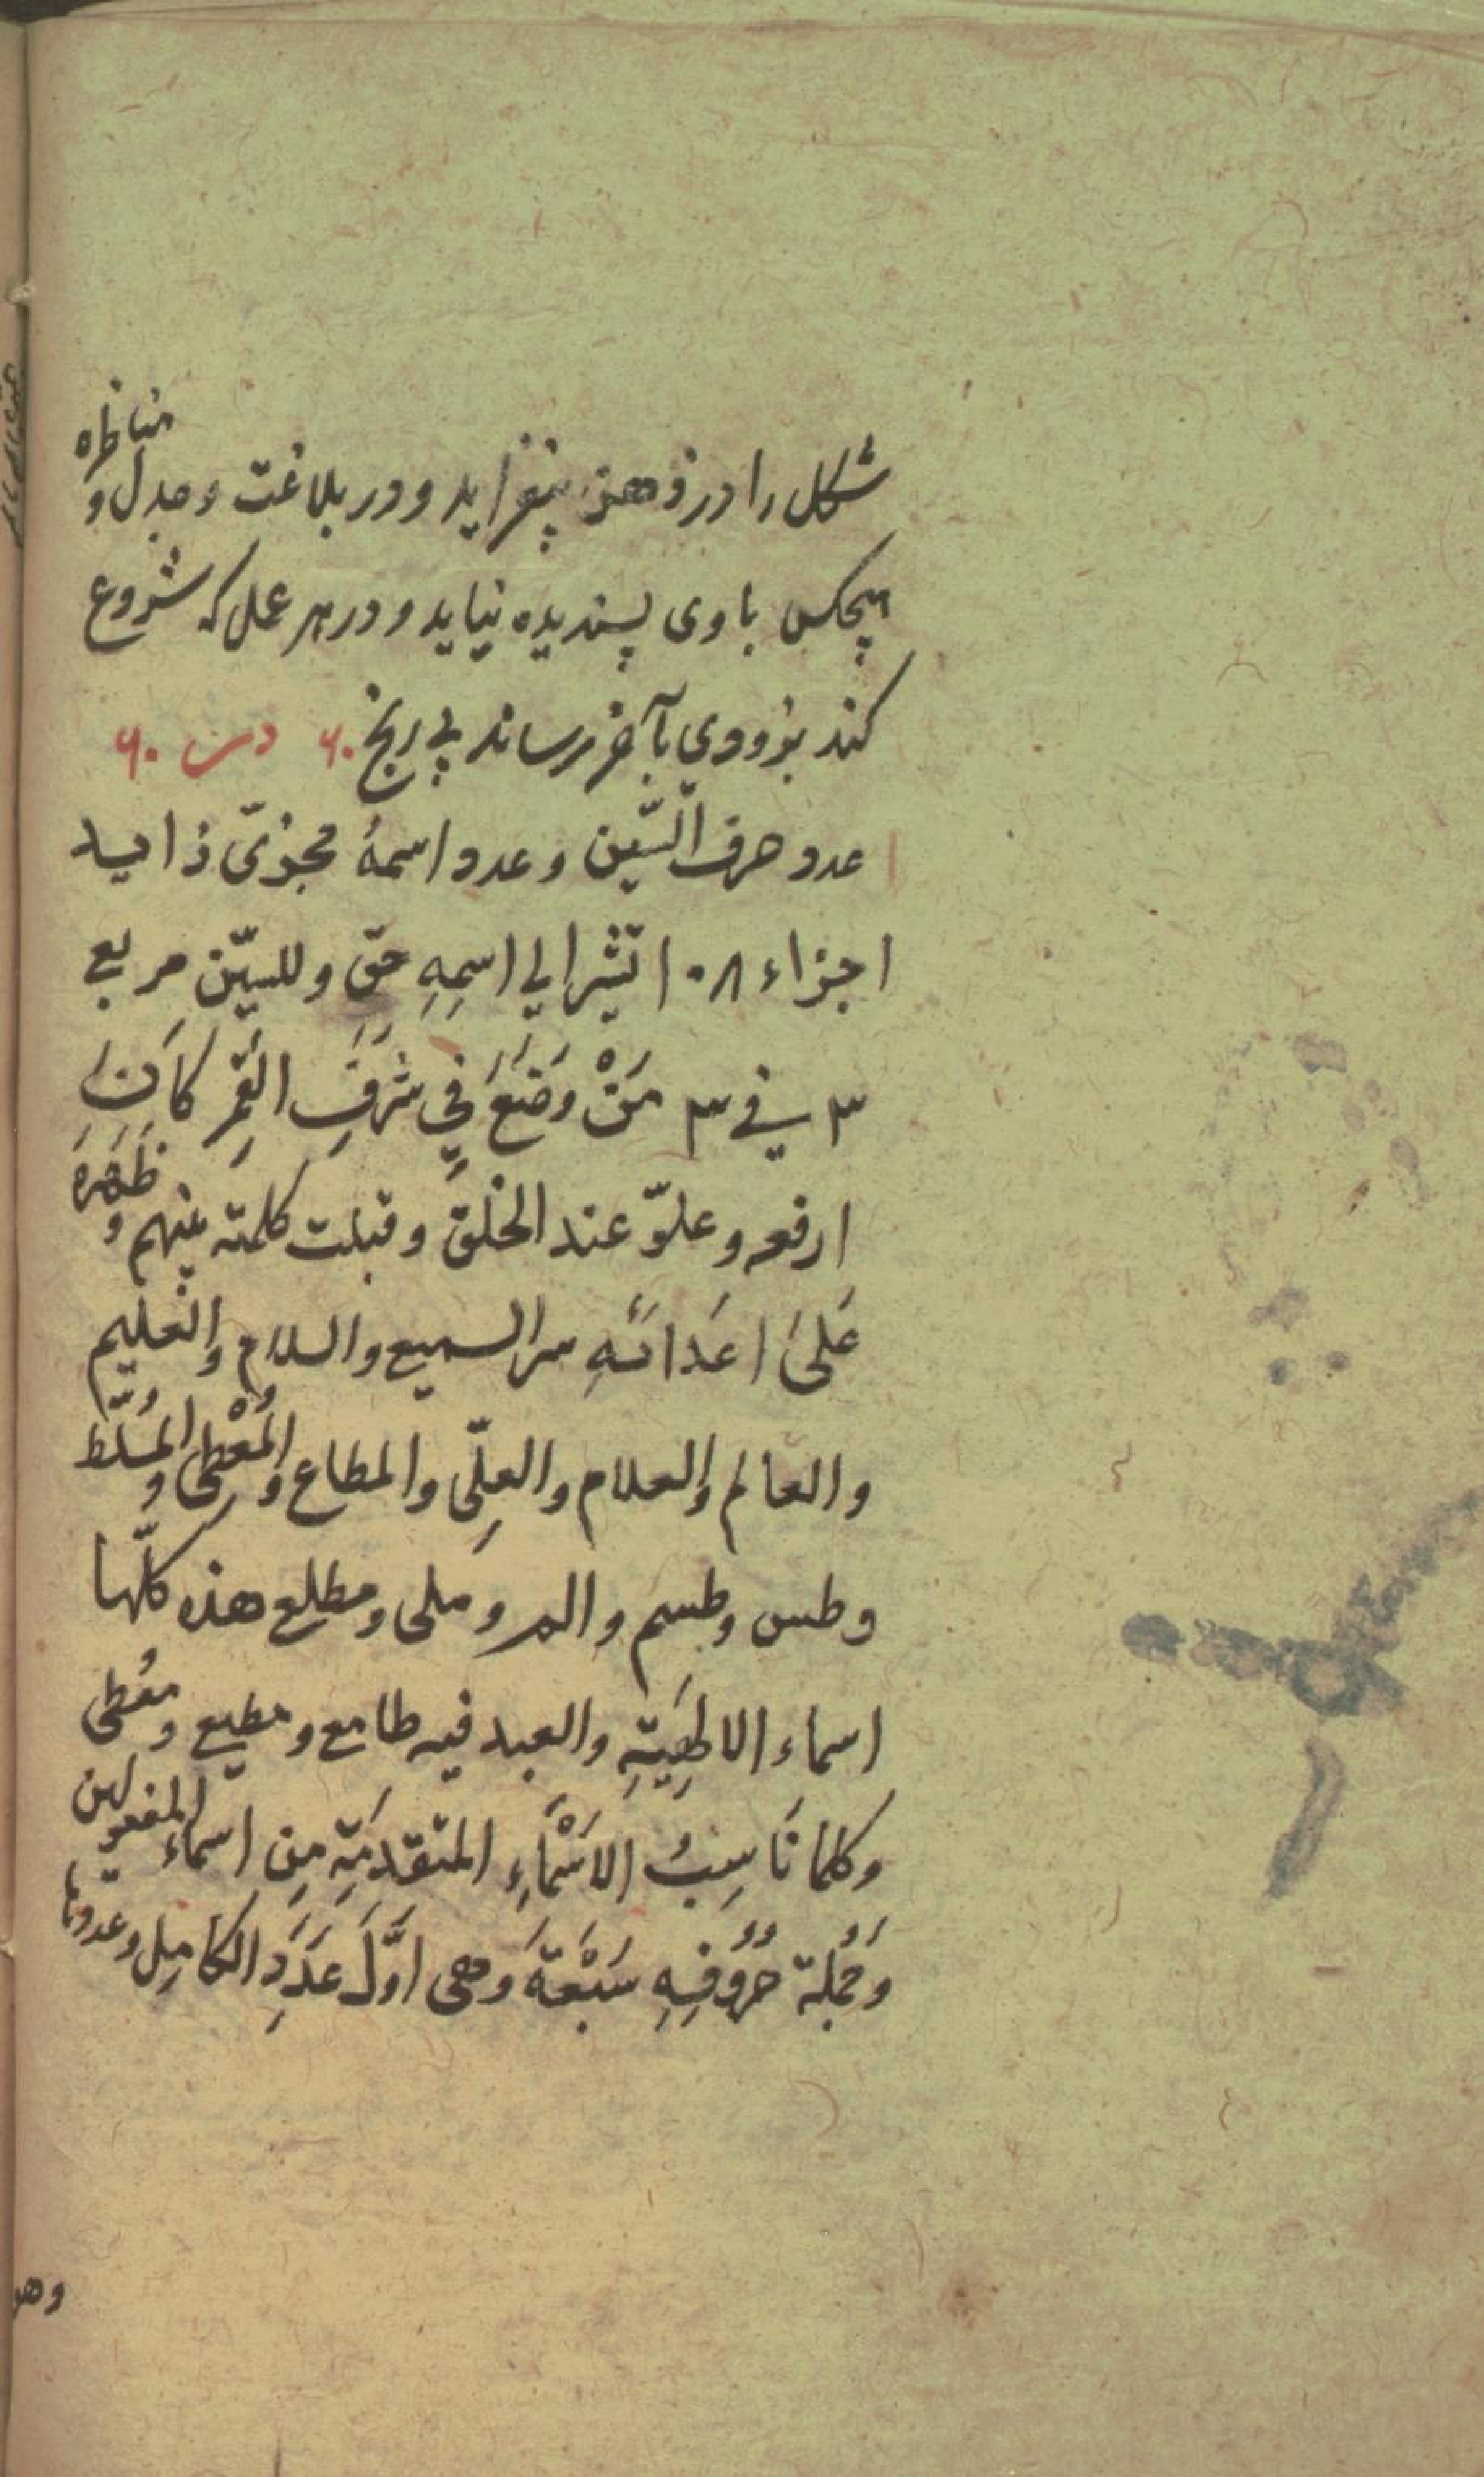 شکل را در ذهن بیفزاید و در بلاغت و جدل و مناظره
هیچکس با وی پسندیده نیاید و در هر عمل که شروع
کند بزودی بآخر رساند بی رنج ۶۰ س ۶۰
عدد حرف السّین وعدد اسمهُ مجزیّ زاید
اجزاء ۱۰۸ تشیر الی اسمِهِ حقّ وللسّین مربع
۳ فی ۳ مَنْ وَضَعَ فِی شَرَفِ القَمَرِ کَانَ
ارفعه وعلوّ عند الخلق وقبلت کلمته بینهم وظَهَرَ
عَلیَ اعَدائهِ سر السمیع والسلام والعلیم
والعالم والعلام والعلِیّ والمطاع والمُعْطی والمُسَلّط
وطس وطسم والمر وملی ومطلع هذه کلّها
اسماء الاطهِیَّةِ والعبد فیه طامع ومطیع ومعُطی
وکلما نَاسِبُ الاَسْمَاءِ المتقدمَةِ مِن اسماء المفعولین
وَجُملة حُرُوُفِهِ سَبْعَةَ وَهی اوَّلَ عَدَدِ الکامِل وعددها
وهو